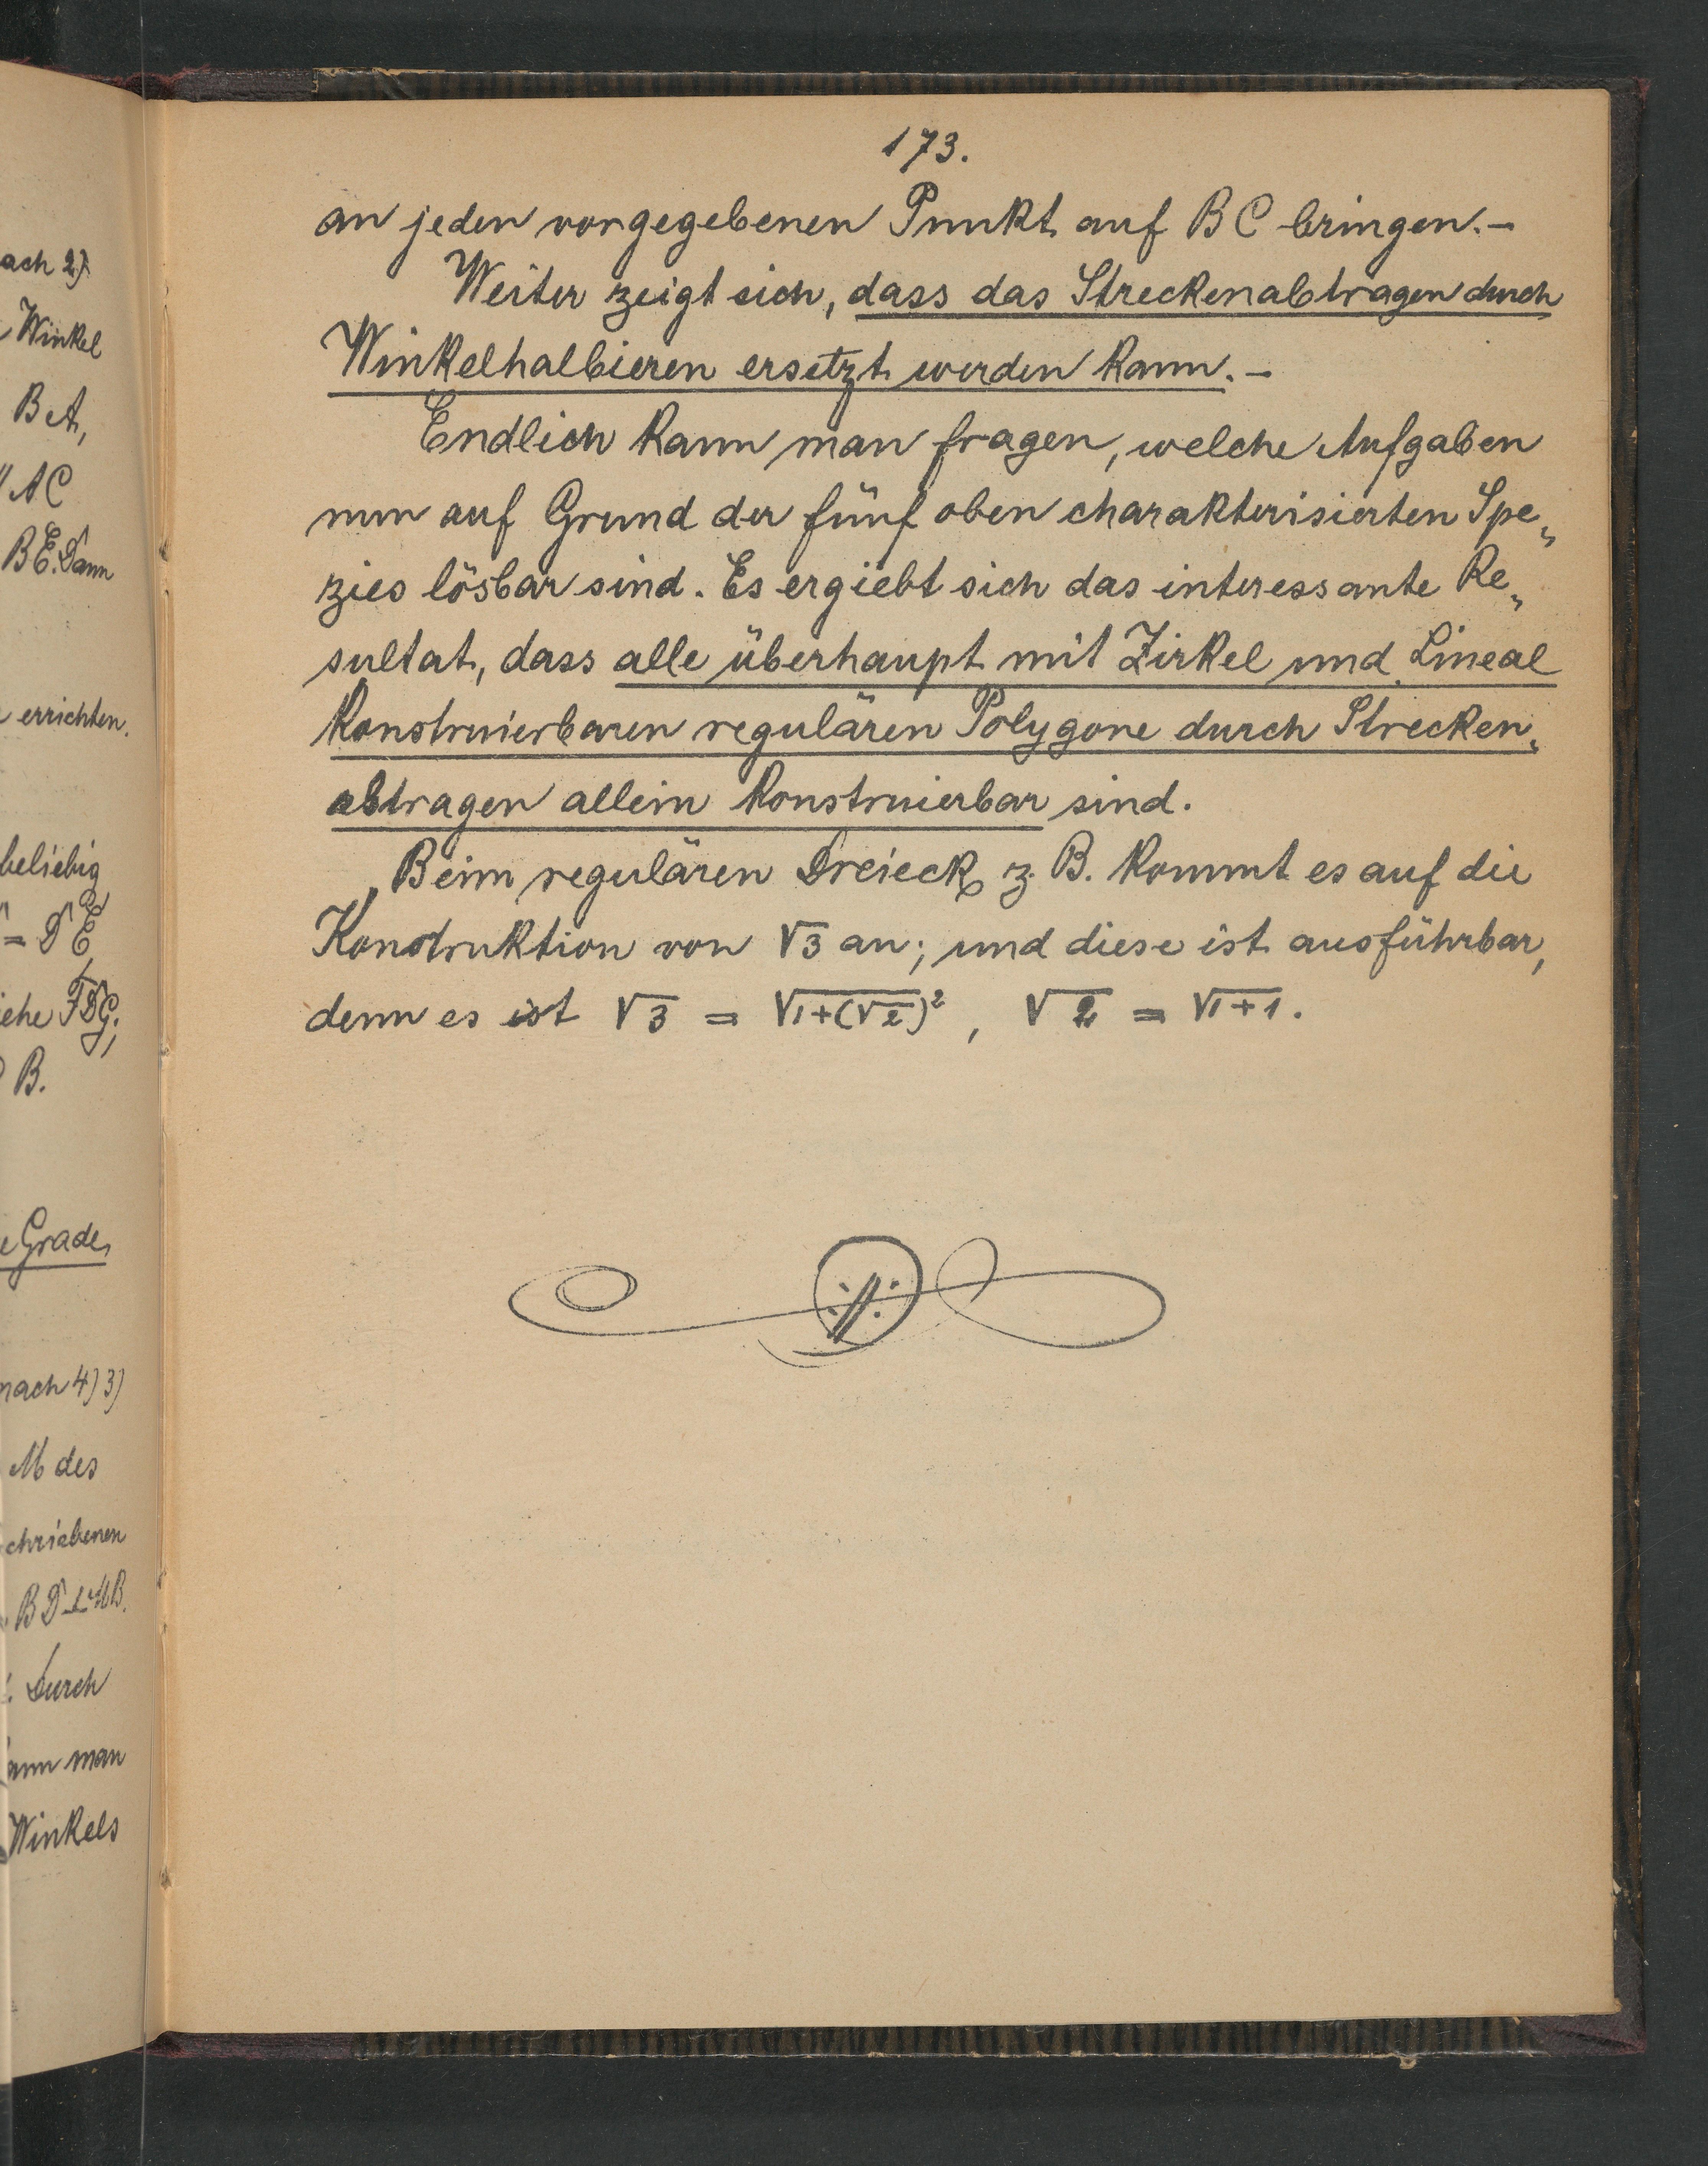 ach 2).
Winkel
BA,
AC
BE. Dann
errichten.
beliebig
= DE
FDG;
B.
Grade
nach 4) 3)
M des
chriebenen
BD ⊥ MB.
Durch
ann man
Winkels
173.
an jeden vorgegebenen Punkt auf BC bringen. –
Weiter zeigt sich, dass das Streckenabtragen durch
Winkelhalbieren ersetzt werden kann. –
Endlich kann man fragen, welche Aufgaben
nun auf Grund der fünf oben charakterisierten Spe„
zies lösbar sind. Es ergiebt sich das interessante Re„
sultat, dass alle überhaupt mit Zirkel und Lineal
konstruierbaren regulären Polygone durch Strecken„
abtragen allein konstruierbar sind.
Beim regulären Dreieck z. B. kommt es auf die
Konstruktion von √3 an; und diese ist ausführbar,
denn es ist √3 = √1+(√2)², √2 = √1+1.